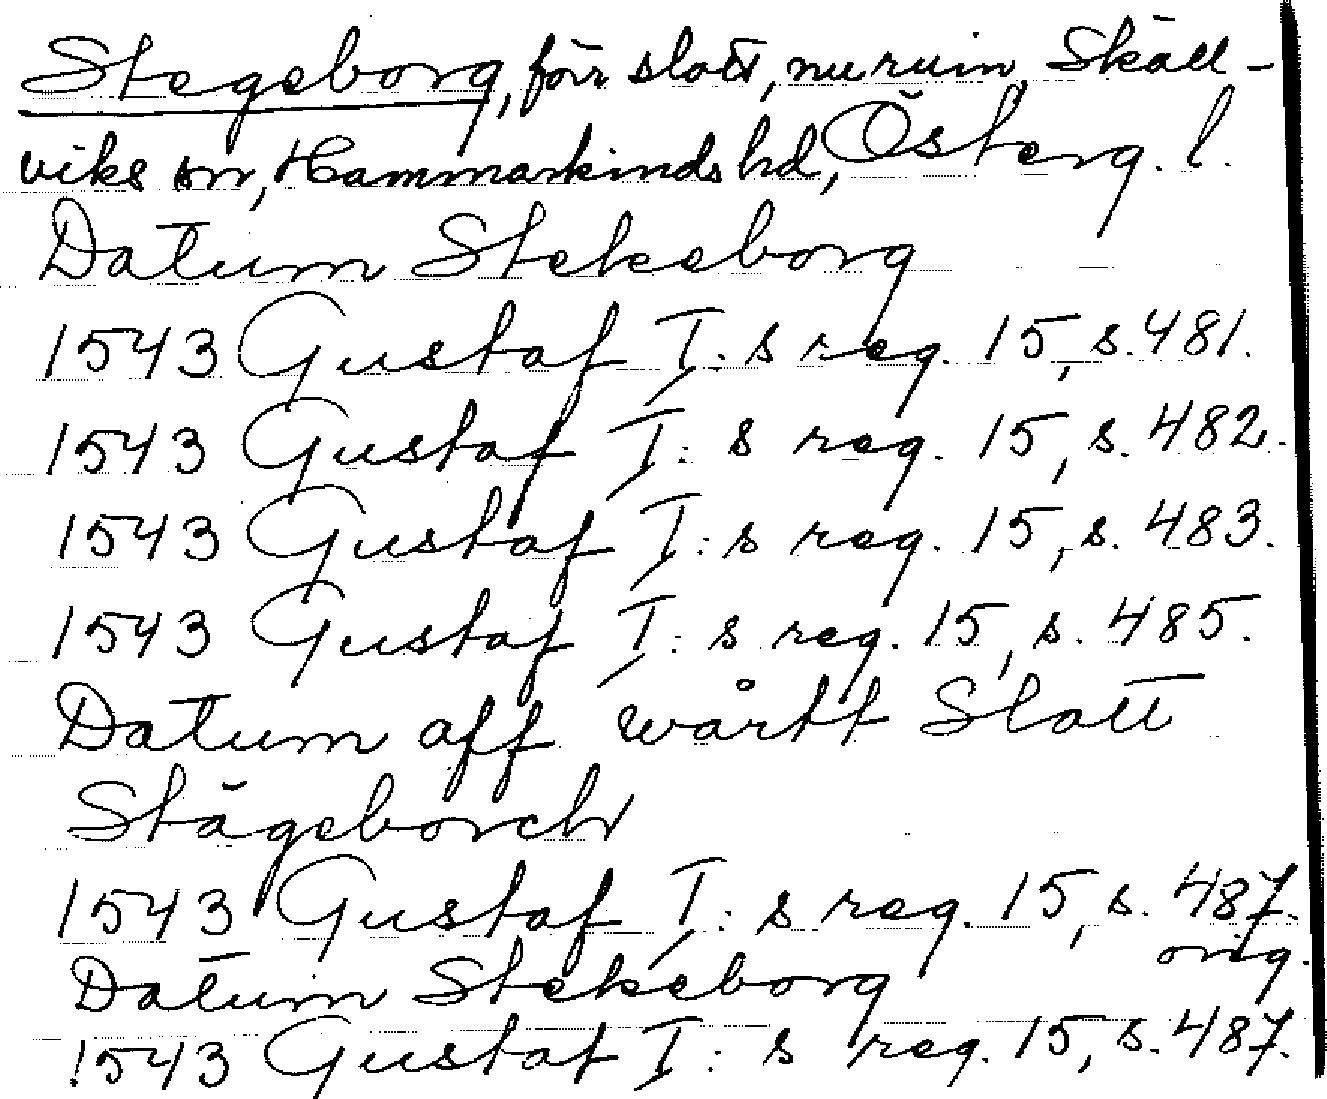 Stegeborg, förr slott, nu ruin, Skäll-
viks sn, Hammarkinds hd, Österg. l.
Datum Stekeborg
1543 Gustaf I: s reg. 15, s. 481.
1543 Gustaf I: s reg. 15, s. 482.
1543 Gustaf I: s reg. 15, s. 483.
1543 Gustaf I: s reg. 15, s. 485.
Datum aff wårtt Slott
Stägeborch
1543 Gustaf I: s reg. 15, s. 487.
orig.
Datum Stekeborg
1543 Gustaf I: s reg. 15, s. 487.